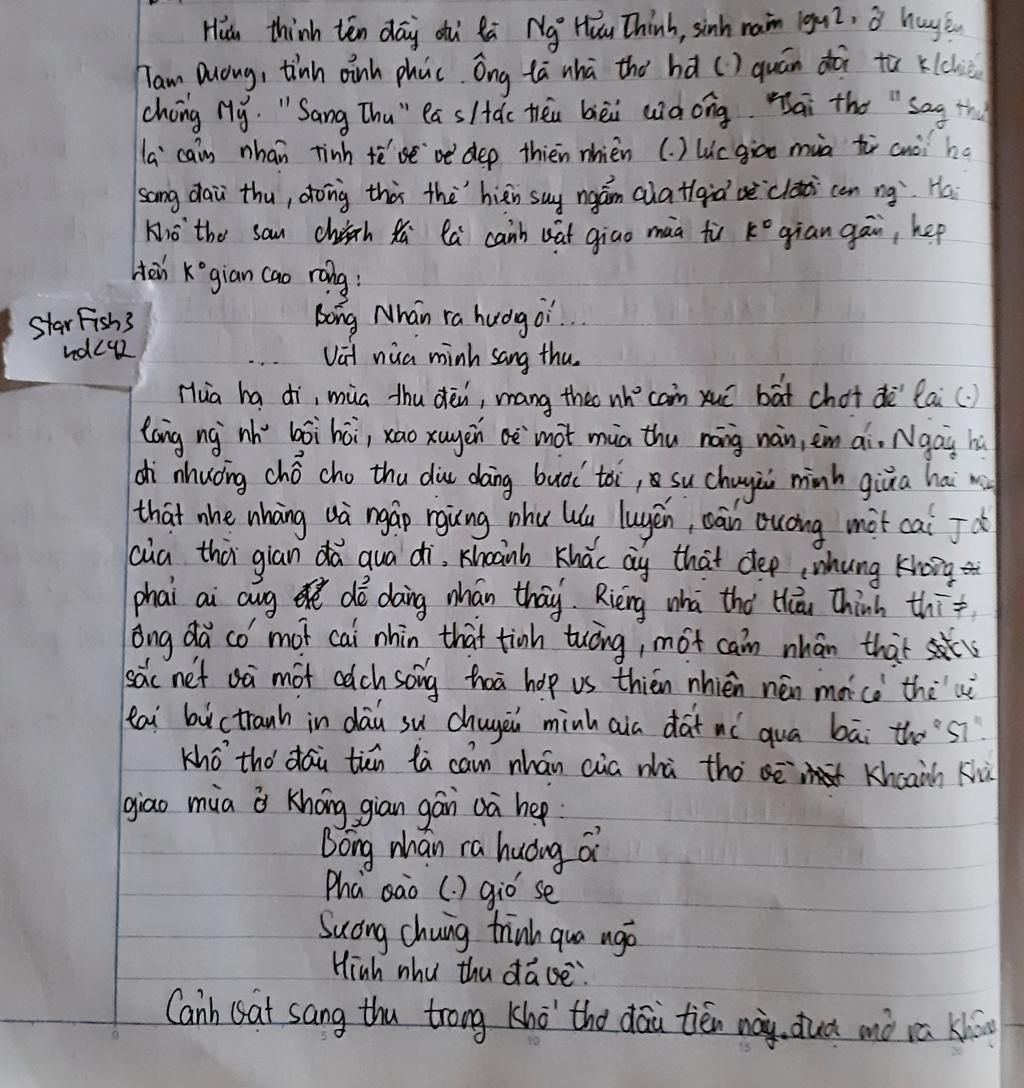 Hữu thỉnh tên đầy đủ là Ng~ Hữu Thỉnh, sinh năm 1942, ở huyện
Tam Dương, tỉnh Vĩnh phúc. Ông là nhà thơ hđ (.) quân đội từ k/chiến
chống Mỹ. "Sang Thu" là s/tác tiêu biểu của ông. Bài thơ "Sag thu
là cảm nhận tinh tế về vẻ đẹp thiên nhiên (.) lúc giao mùa từ cuối hạ
sang đầu thu, đồng thời thể hiện suy ngẫm của t/giả về c/đời con ng`. Hai
khổ thơ sau là cảnh vật giao mùa từ k° gian gần, hẹp
đến k° gian cao rộng:
Bỗng Nhận ra hương ổi...
... Vắt nửa mình sang thu.
StarFish3
hdc42
Mùa hạ đi, mùa thu đến, mang theo nh~ cảm xúc bất chợt để lại (.)
lòng ng` nh~ bồi hồi, xao xuyến về một mùa thu nồng nàn, êm ái. Ngày hạ
đi nhường chỗ cho thu dịu dàng bước tới, sự chuyển mình giữa hai
thật nhẹ nhàng và ngập ngừng như lưu luyến, vấn vương một cái
của thời gian đã qua đi. Khoảnh khắc ấy thật đẹp, nhưng không
phải ai cũng dễ dàng nhận thấy. Riêng nhà thơ Hữu Thỉnh thì ≠,
ông đã có một cái nhìn thật tinh tường, một cảm nhận thật
sắc nét và một cách sống hoà hợp vs thiên nhiên nên mới có thể vẽ
lại bức tranh in dấu sự chuyển mình của đất nc qua bài thơ "ST".
Khổ thơ đầu tiên là cảm nhận của nhà thơ về khoảnh khắc
giao mùa ở không gian gần và hẹp:
Bỗng nhận ra hương ổi
Phả vào (.) gió se
Sương chùng trình qua ngõ
Hình như thu đã về.
Cảnh vật sang thu trong khổ thơ đầu tiên này được mở ra không